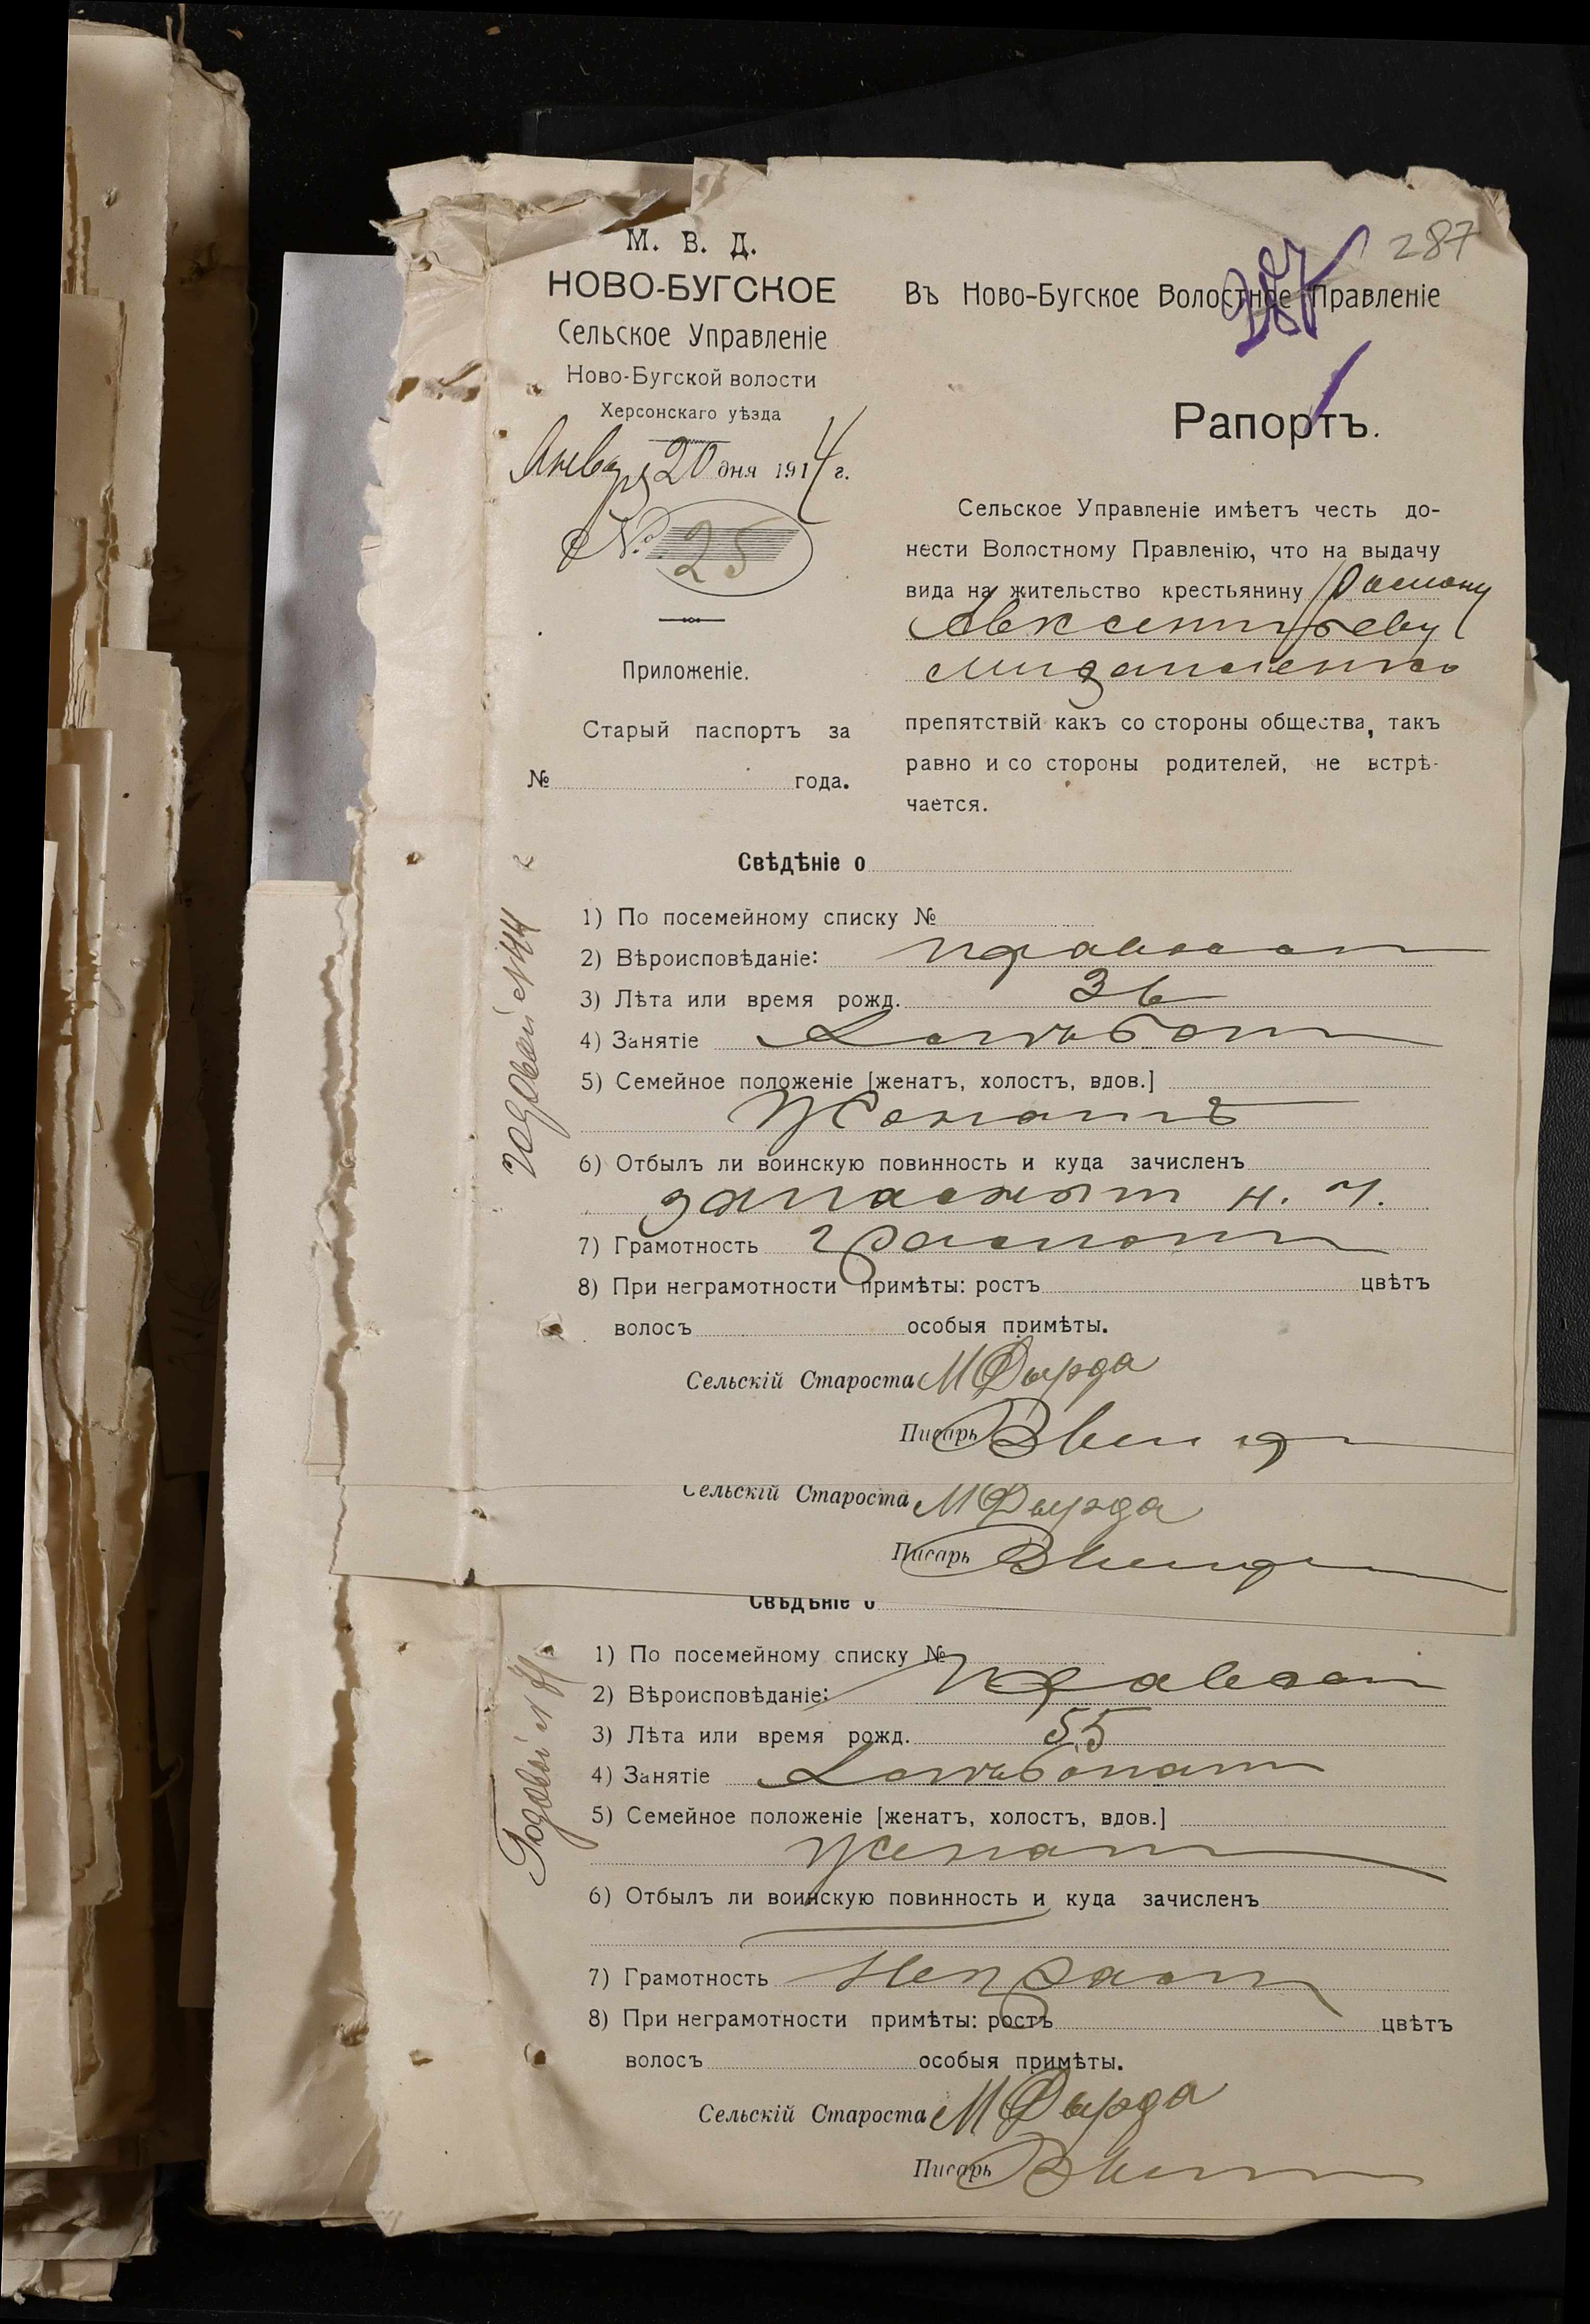 287
М. В. Д.
НОВО-БУГСКОЕ
Сельское Управленіе
Ново-Бугской волости
Херсонскаго уѣзда
Января 20 дня 1914 г.
№ 25
Приложеніе.
Старый паспортъ за
№ года.
Въ Ново-Бугское Волостное Правленіе
287
Рапортъ.
Сельское Управленіе имѣетъ честь до-
нести Волостному Правленію, что на выдачу
вида на жительство крестьянину Роману
Авксентьеву

препятствій какъ со стороны общества, такъ
равно и со стороны родителей, не встрѣ-
чается.
Свѣдѣніе о
1) По посемейному списку №
2) Вѣроисповѣданіе: православн
3) Лѣта или время рожд. 36
4) Занятіе Хлѣбоп
5) Семейное положеніе [женатъ, холостъ, вдов.]
Женатъ
6) Отбылъ ли воинскую повинность и куда зачисленъ
запасным н. ч.
7) Грамотность грамотн
8) При неграмотности примѣты: ростъ цвѣтъ
волосъ особыя примѣты.
Сельскій Староста М Дырда
Писарь
годовой №44
Сельскій Староста М Дырда
Писарь
Свѣдѣніе о
1) По посемейному списку №
2) Вѣроисповѣданіе: Правосл
3) Лѣта или время рожд. 55
4) Занятіе Хлѣбопаш
5) Семейное положеніе [женатъ, холостъ, вдов.]
Женат
6) Отбылъ ли воинскую повинность и куда зачисленъ
7) Грамотность Неграмот
8) При неграмотности примѣты: ростъ цвѣтъ
волосъ особыя примѣты.
Сельскій Староста М Дырда
Писарь
Годовой №